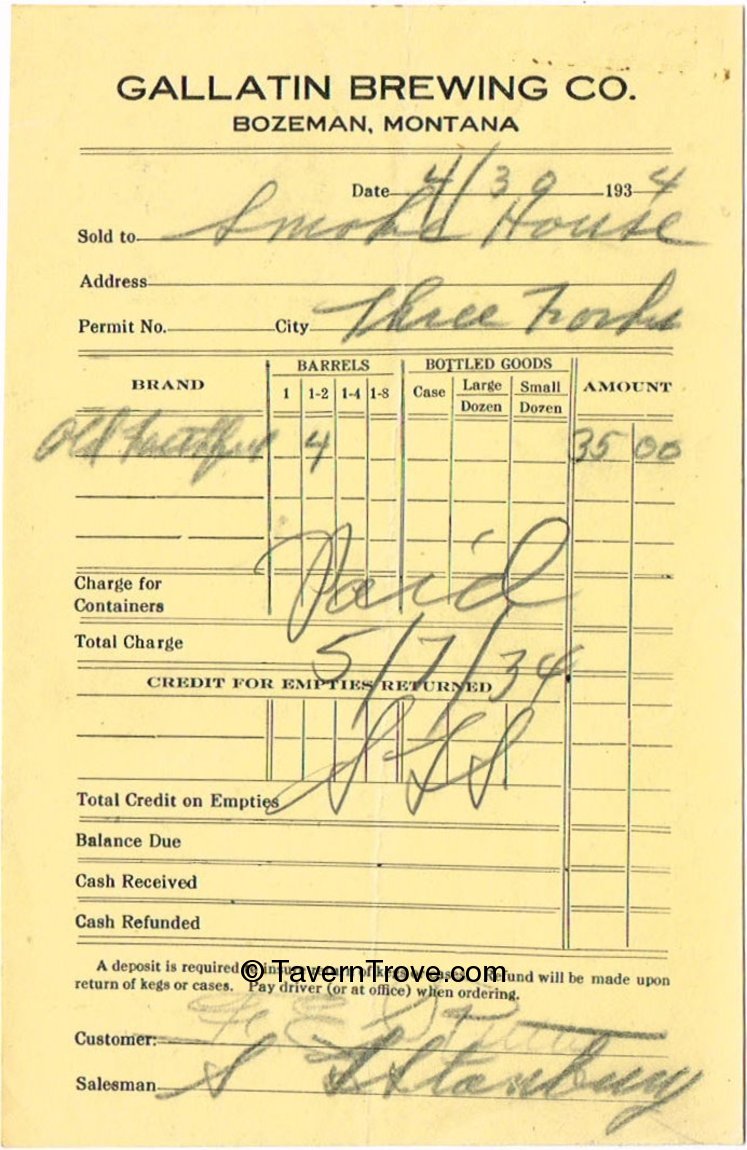 GALLATIN BREWING CO.
BOZEMAN, MONTANA
Date 4/30 1934
Sold to Smoke House
Address
Permit No. City Three Forks
BRAND BARRELS BOTTLED GOODS AMOUNT
1 1-2 1-4 1-8 Case Large Dozen Small Dozen
Old Faithful 4 35 00
Paid
Charge for
Containers
Total Charge
5/7/34
CREDIT FOR EMPTIES RETURNED
SLS
Total Credit on Empties
Balance Due
Cash Received
Cash Refunded
A deposit is required to insure return of kegs or cases. Refund will be made upon
return of kegs or cases. Pay driver (or at office) when ordering.
© TavernTrove.com
Customer:
Salesman S